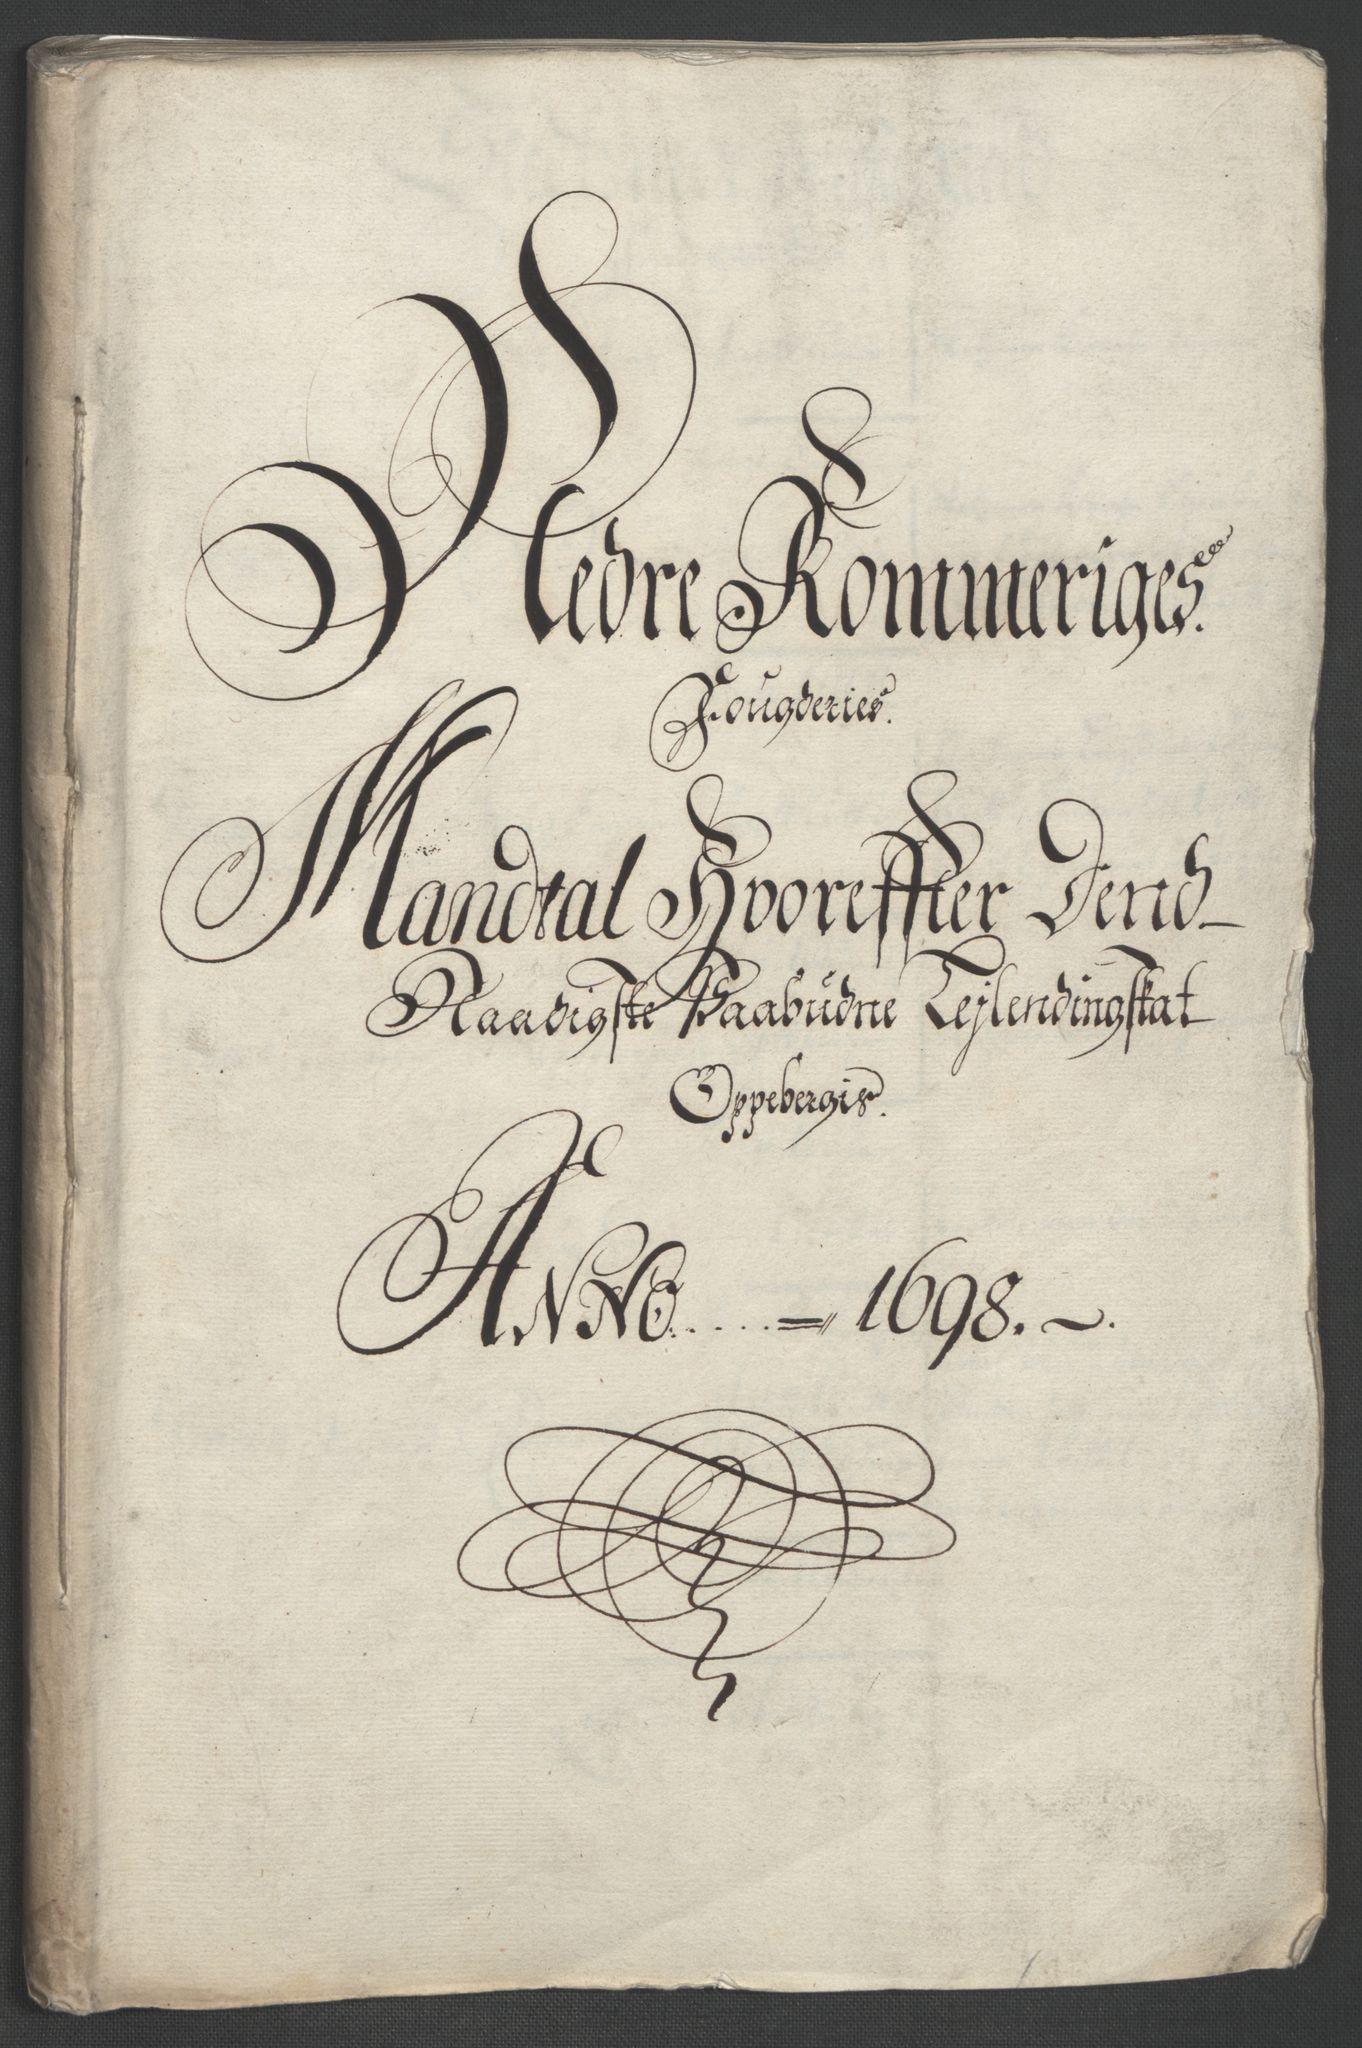 Nedre Rommeriges.
Fougderies.
Mandtal Hvoreffter Dend
Naadigste Paabudne Lejlendingskat
Oppebergis.
ANNO..... = 1698. ~.